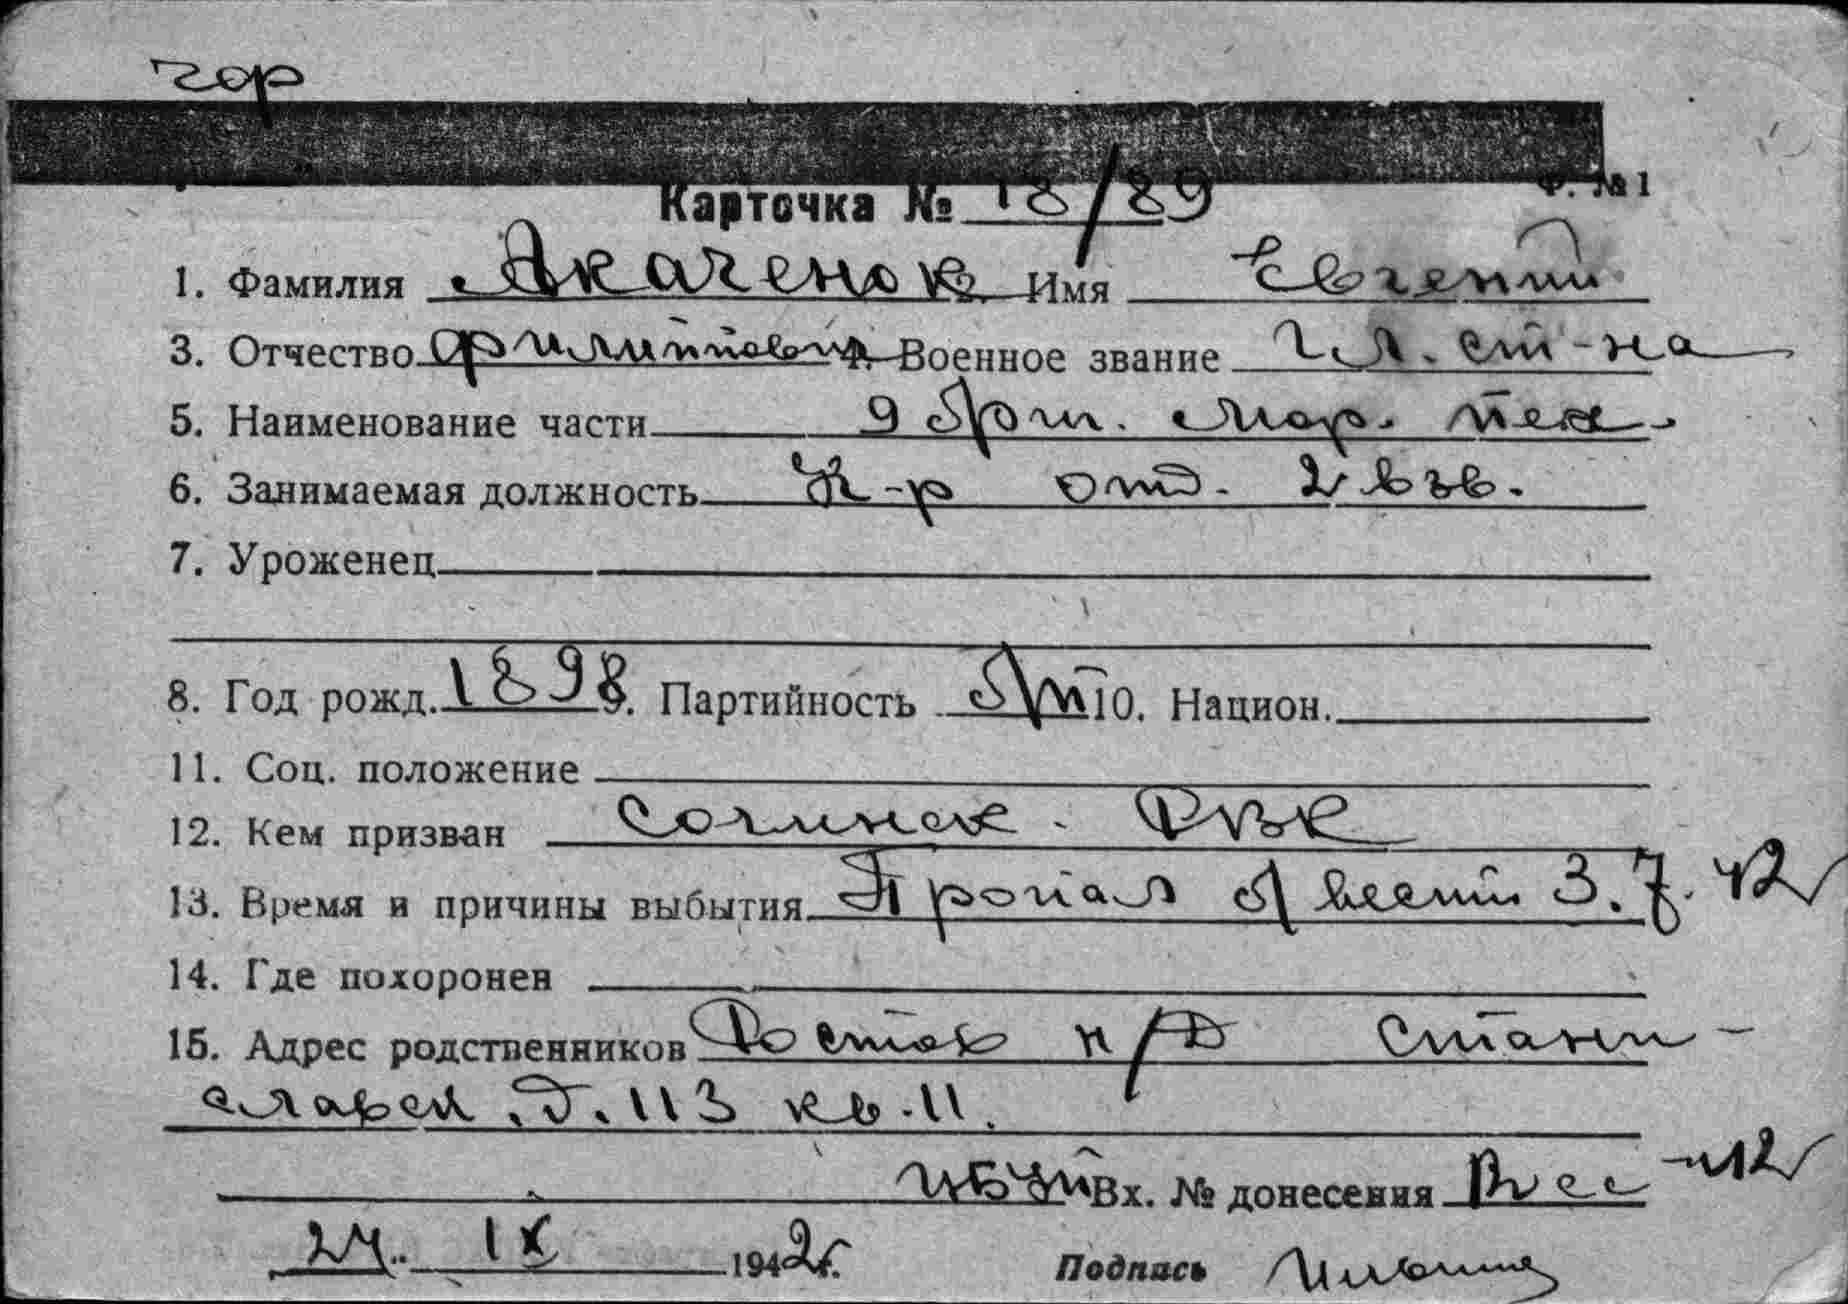 гор
Карточка № 18/89
Ф. № 1
1. Фамилия Акаченок Имя Евгений
3. Отчество Филиппович 4. Военное звание гл. ст-на
5. Наименование части 9 бриг. мор. пех.
6. Занимаемая должность К-р отд. 2 взв.
7. Уроженец
8. Год рожд. 1898 9. Партийность б/п 10. Национ.
11. Соц. положение
12. Кем призван Сочинск. РВК
13. Время и причины выбытия Пропал б/вести 3.7.42
14. Где похоронен
15. Адрес родственников Ростов н/Д Стани-
славск. д. 113 кв. 11.
Вх. № донесения
24. IX 1942 г. Подпись